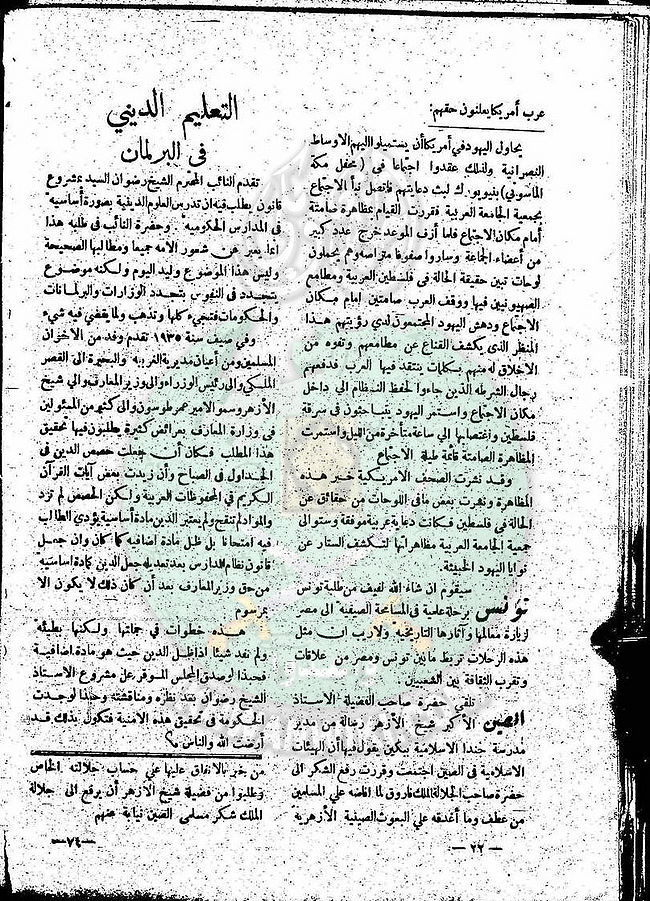 عرب أمريكا يعلنون حقهم:
يحاول اليهود في أمريكا أن يستميلوا اليهم الاوساط
النصرانية ولذلك عقدوا اجتماعا في ( محفل مكة
الماسوني) بنيويورك لبث دعايتهم فاتصل نبأ الاجتماع
بجمعية الجامعة العربية فقررت القيام بمظاهرة صامتة
أمام مكان الاجتماع فلما أزف الموعد خرج عدد كبير
من أعضاء الجماعة وساروا صفوفا متراصه وهم يحملون
لوحات تبين حقيقة الحالة في فلسطين العربية ومطامع
الصهيونيين فيها ووقف العرب صامتين امام مكان
الاجتماع ودهش اليهود المجتمعون لدى رؤيتهم هذا
المنظر الذى يكشف القناع عن مطامعهم وتفوه من
لا خلاق له منهم بكلمات ينتقد فيها العرب فدفعهم
رجال الشرطه الذين جاءوا لحفظ النظام الي داخل
مكان الاجتماع واستمر اليهود يتباحثون في سرقة
فلسطين واغتصابها إلى ساعة متأخرة من الليل واستمرت
المظاهرة الصامتة قائمة طيلة الاجتماع
وقد نشرت الصحف الامريكية خبر هذه
المظاهرة ونشرت بعض مافى اللوحات من حقائق عن
الحالة فى فلسطين فكانت دعاية عربية موفقة وستوالى
جمعية الجامعة العربية مظاهراتها لتكشف الستار عن
نوايا اليهود الخبيثة.
تونس سيقوم ان شاء الله لفيف من طلبة تونس
برحلة علمية فى المسامحة الصيفية الى مصر
لزيارة معالمها وآثارها التاريخيه ولاريب ان مثل
هذه الرحلات تربط مابين تونس ومصر من علاقات
وتقرب الثقافة بين الشعبين.
الصين تلقي حضرة صاحب الفضيلة الاستاذ
الأكبر شيخ الأزهر رسالة من مدير
مدرسة جندا الاسلامية ببكين يقول فيها أن الهيئات
الاسلامية فى الصين اجتمعت وقررت رفع الشكر الى
حضرة صاحب الجلالة الملك فاروق لما افاضه علي المسلمين
من عطف وما أغدقه علي البعوث الصينية الأزهرية
— ٢٢ —
التعليم الديني
فى البرلمان
تقدم النائب المحترم الشيخ رضوان السيد بمشروع
قانون يطلب فيه ان تدرس العلوم الدينية بصورة أساسيه
فى المدارس الحكوميه. وحضرة النائب فى طلبه هذا
انما يعبر عن شعور الامه جميعا ومطالبها الصحيحة
وليس هذا الموضوع وليد اليوم ولكنه موضوع
يتجدد فى النفوس بتجدد الوزارات والبرلمانات
والحكومات فتجيء كلها وتذهب ولما يقضي فيه شيء
وفي صيف سنة ١٩٣٥ تقدم وفد من الاخوان
المسلمين ومن أعيان مديرية الغربيه والبحيرة الى القصر
الملكي والى رئيس الوزراء والى وزير المعارف والي شيخ
الأزهر وسمو الامير عمر طوسون والى كثير من المسئولين
فى وزارة المعارف بعرائض كثيرة يطلبون فيها تحقيق
هذا المطلب فكان أن جعلت حصص الدين فى
الجداول فى الصباح وأن زيدت بعض آيات القرآن
الكريم في المحفوظات العربية ولكن الحصص لم تزد
والمواد لم تنقح ولم يعتبر الدين مادة أساسية يؤدي الطالب
فيه امتحانا بل ظل مادة اضافيه كما كان وان جعل
قانون نظام المدارس بعد تعديله جعل الدين كمادة اساسية
من حق وزير المعارف بعد أن كان ذلك لا يكون الا
بمرسوم
هذه خطوات في جملتها ولكنها بطيئه
ولم تفد شيئا اذ اظل الدين حيث هو مادة اضافية
فحبذا لو صدق المجلس الموقر على مشروع الاستاذ
الشيخ رضوان بعد نظره ومناقشته وحبذا لو جدت
الحكومة فى تحقيق هذه الأمنية فتكون بذلك قد
أرضت الله والناس م؟
من خير بالانفاق عليها على حساب جلالته الخاص
وطلبوا من فضيلة شيخ الازهر أن يرفع الى جلالة
الملك شكر مسلمي الصين نيابة عنهم
— ٧٤ —